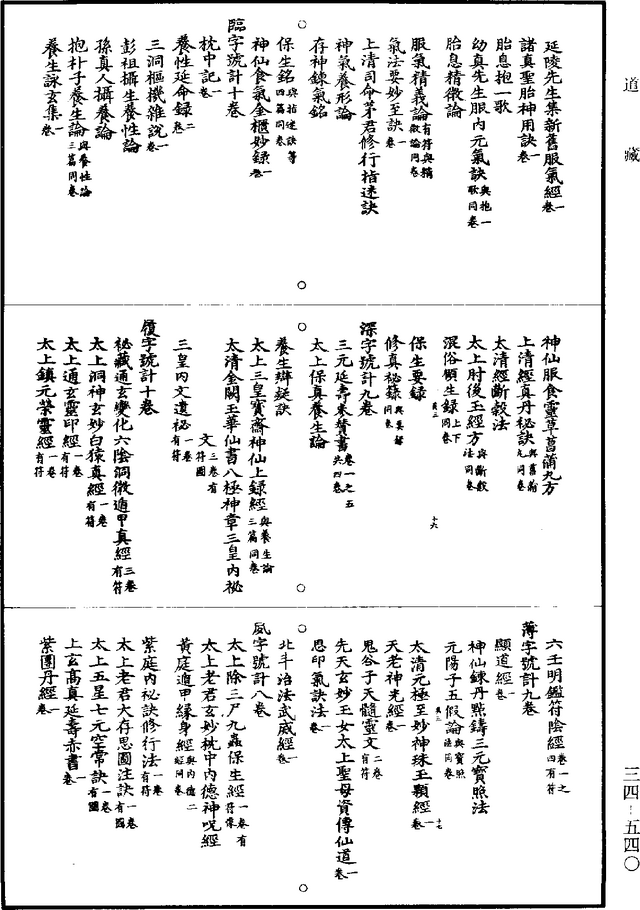 道藏
延陵先生集新舊服氣經一卷
諸真聖胎神用訣一卷
胎息抱一歌
幼真先生服內元氣訣與抱一歌同卷
胎息精微論
服氣精義論有符與精微論同卷
氣法要妙至訣一卷
上清司命茅君修行指迷訣
神氣養形論
存神鍊氣銘
保生銘與指迷訣等四篇同卷
神仙食氣金櫃妙錄一卷
臨字號計十卷
枕中記一卷
養性延命錄二卷
三洞樞機雜說一卷
彭祖攝生養性論
孫真人攝養論
抱朴子養生論與養性論三篇同卷
養生詠玄集一卷
神仙服食靈草菖蒲丸方
上清經真丹秘訣與菖蒲丸同卷
太清經斷穀法
太上肘後玉經方與斷穀法同卷
混俗頤生錄上下同卷
保生要錄
修真祕錄與要錄同卷
深字號計九卷
三元延壽參贊書卷一之五共四卷
太上保真養生論
養生辯疑訣
太上三皇寶齋神仙上錄經與養生論三篇同卷
太清金闕玉華仙書八極神章三皇內祕
文三卷有符圖
三皇內文遺祕一卷有符
履字號計十卷
祕藏通玄變化六陰洞微遁甲真經三卷有符
太上洞神玄妙白猿真經一卷有符
太上通玄靈印經一卷有符
太上鎮元榮靈經一卷有符
十六
六壬明鑑符陰經卷一之四有符
薄字號計九卷
顯道經一卷
神仙鍊丹點鑄三元寶照法
元陽子五假論與寶照法同卷
太清元極至妙神珠玉顆經一卷
天老神光經一卷
鬼谷子天髓靈文二卷有符
先天玄妙玉女太上聖母資傳仙道一卷
思印氣訣法一卷
北斗治法武威經一卷
夙字號計八卷
太上除三尸九蟲保生經一卷有符像
太上老君玄妙枕中內德神咒經
黃庭遁甲緣身經與內德二經同卷
紫庭內祕訣修行法一卷有符
太上老君大存思圖注訣一卷有圖
太上五星七元空常訣一卷有圖
上玄高真延壽赤書一卷
紫團丹經一卷
十七
三四—五四〇